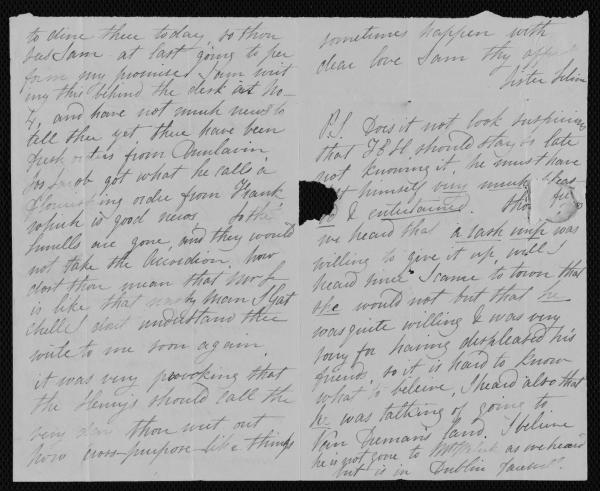 to dine thee today, so thou
sees I am at last going to per
form my promise I am writ
ing this behind the desk at No
4, and have not much news to
tell thee yet there have been
fresh orders from Dunlavin
Jos Jacob got what he calls a
flourishing order from Frank
which is good news the
Smulls are gone, and they would
not take the Accordion, how
dost thou mean that Mr L
is like that nasty man I Gat
chell I dont understand thee
write to me soon again
it was very provoking that
the Henrys should call the
very day thou went out
how cross-purpose like things
sometimes happen with
dear love I am thy
Sister
P.S. Does it not look suspicious
that should stay so late
not knowing it, he must have
himself very much
& entertained.
we heard that a lash was
willing to give it up, well I
heard since I came to town that
she would not but that he
was quite willing I was very
sorry for having displeased his
friends, so it is hard to know
what to beleive, I heard also that
he was talking of going to
Van Demans land. I beleive
he is not gone to as we heard
but is in Dublin